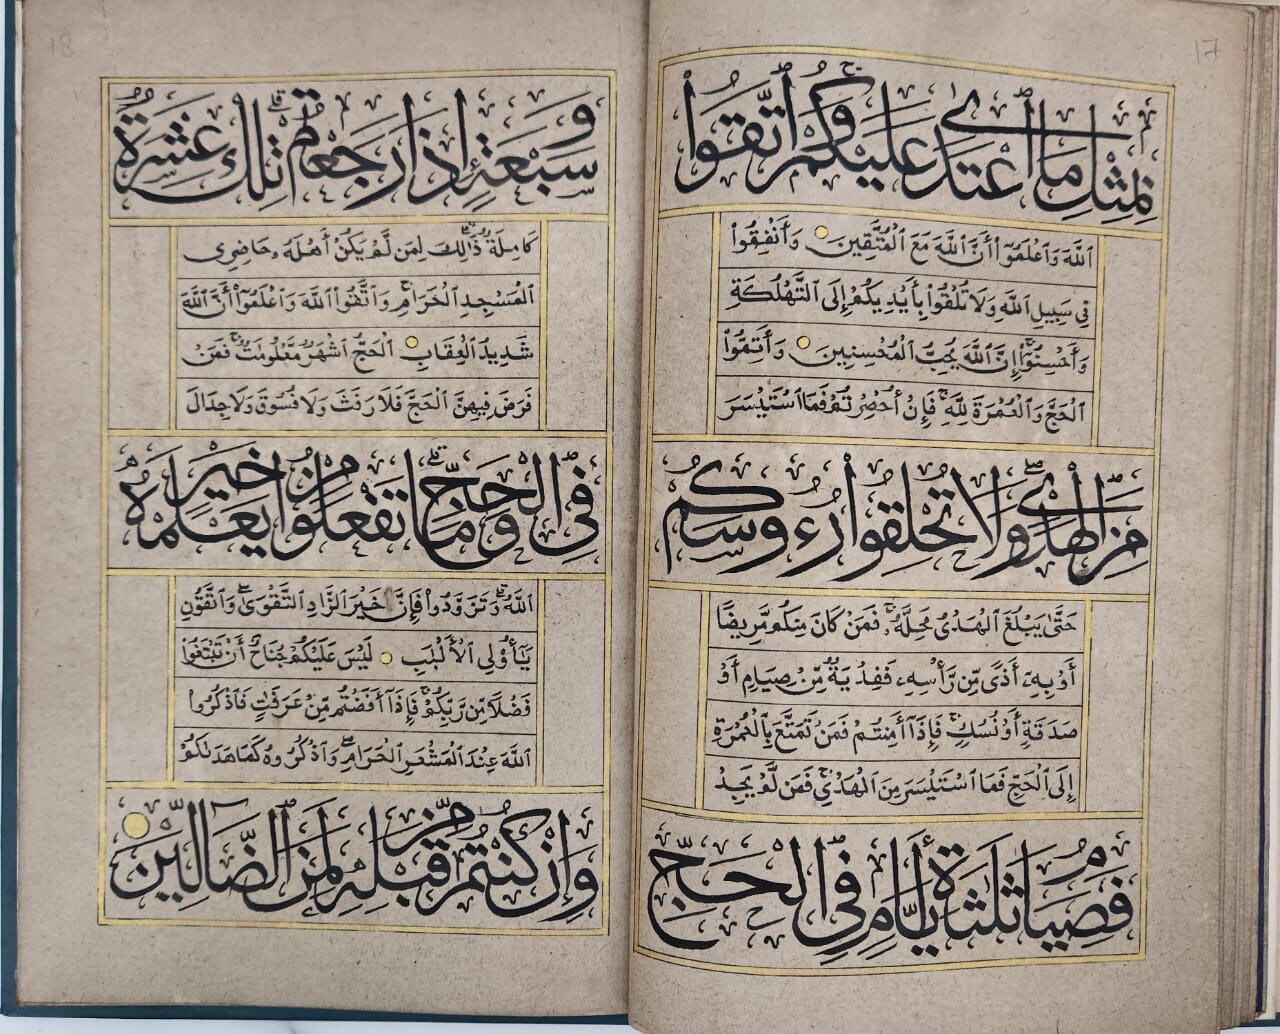 17
بِمِثْلِ مَا اعْتَدَىٰ عَلَيْكُمْ وَاتَّقُوا
اللَّهَ وَاعْلَمُوا أَنَّ اللَّهَ مَعَ الْمُتَّقِينَ وَأَنْفِقُوا
فِي سَبِيلِ اللَّهِ وَلَا تُلْقُوا بِأَيْدِيكُمْ إِلَى التَّهْلُكَةِ
وَأَحْسِنُوا إِنَّ اللَّهَ يُحِبُّ الْمُحْسِنِينَ وَأَتِمُّوا
الْحَجَّ وَالْعُمْرَةَ لِلَّهِ فَإِنْ أُحْصِرْتُمْ فَمَا اسْتَيْسَرَ
مِنَ الْهَدْيِ وَلَا تَحْلِقُوا رُءُوسَكُمْ
حَتَّىٰ يَبْلُغَ الْهَدْيُ مَحِلَّهُ فَمَنْ كَانَ مِنْكُمْ مَرِيضًا
أَوْ بِهِ أَذًى مِنْ رَأْسِهِ فَفِدْيَةٌ مِنْ صِيَامٍ أَوْ
صَدَقَةٍ أَوْ نُسُكٍ فَإِذَا أَمِنْتُمْ فَمَنْ تَمَتَّعَ بِالْعُمْرَةِ
إِلَى الْحَجِّ فَمَا اسْتَيْسَرَ مِنَ الْهَدْيِ فَمَنْ لَمْ يَجِدْ
فَصِيَامُ ثَلٰثَةِ أَيَّامٍ فِي الْحَجِّ
18
وَسَبْعَةٍ إِذَا رَجَعْتُمْ تِلْكَ عَشَرَةٌ
كَامِلَةٌ ذَٰلِكَ لِمَنْ لَمْ يَكُنْ أَهْلُهُ حَاضِرِي
الْمَسْجِدِ الْحَرَامِ وَاتَّقُوا اللَّهَ وَاعْلَمُوا أَنَّ اللَّهَ
شَدِيدُ الْعِقَابِ الْحَجُّ أَشْهُرٌ مَعْلُومٰتٌ فَمَنْ
فَرَضَ فِيهِنَّ الْحَجَّ فَلَا رَفَثَ وَلَا فُسُوقَ وَلَا جِدَالَ
فِي الْحَجِّ وَمَا تَفْعَلُوا مِنْ خَيْرٍ يَعْلَمْهُ
اللَّهُ وَتَزَوَّدُوا فَإِنَّ خَيْرَ الزَّادِ التَّقْوَىٰ وَاتَّقُونِ
يَا أُولِي الْأَلْبٰبِ لَيْسَ عَلَيْكُمْ جُنَاحٌ أَنْ تَبْتَغُوا
فَضْلًا مِنْ رَبِّكُمْ فَإِذَا أَفَضْتُمْ مِنْ عَرَفٰتٍ فَاذْكُرُوا
اللَّهَ عِنْدَ الْمَشْعَرِ الْحَرَامِ وَاذْكُرُوهُ كَمَا هَدٰىكُمْ
وَإِنْ كُنْتُمْ مِنْ قَبْلِهِ لَمِنَ الضَّالِّينَ